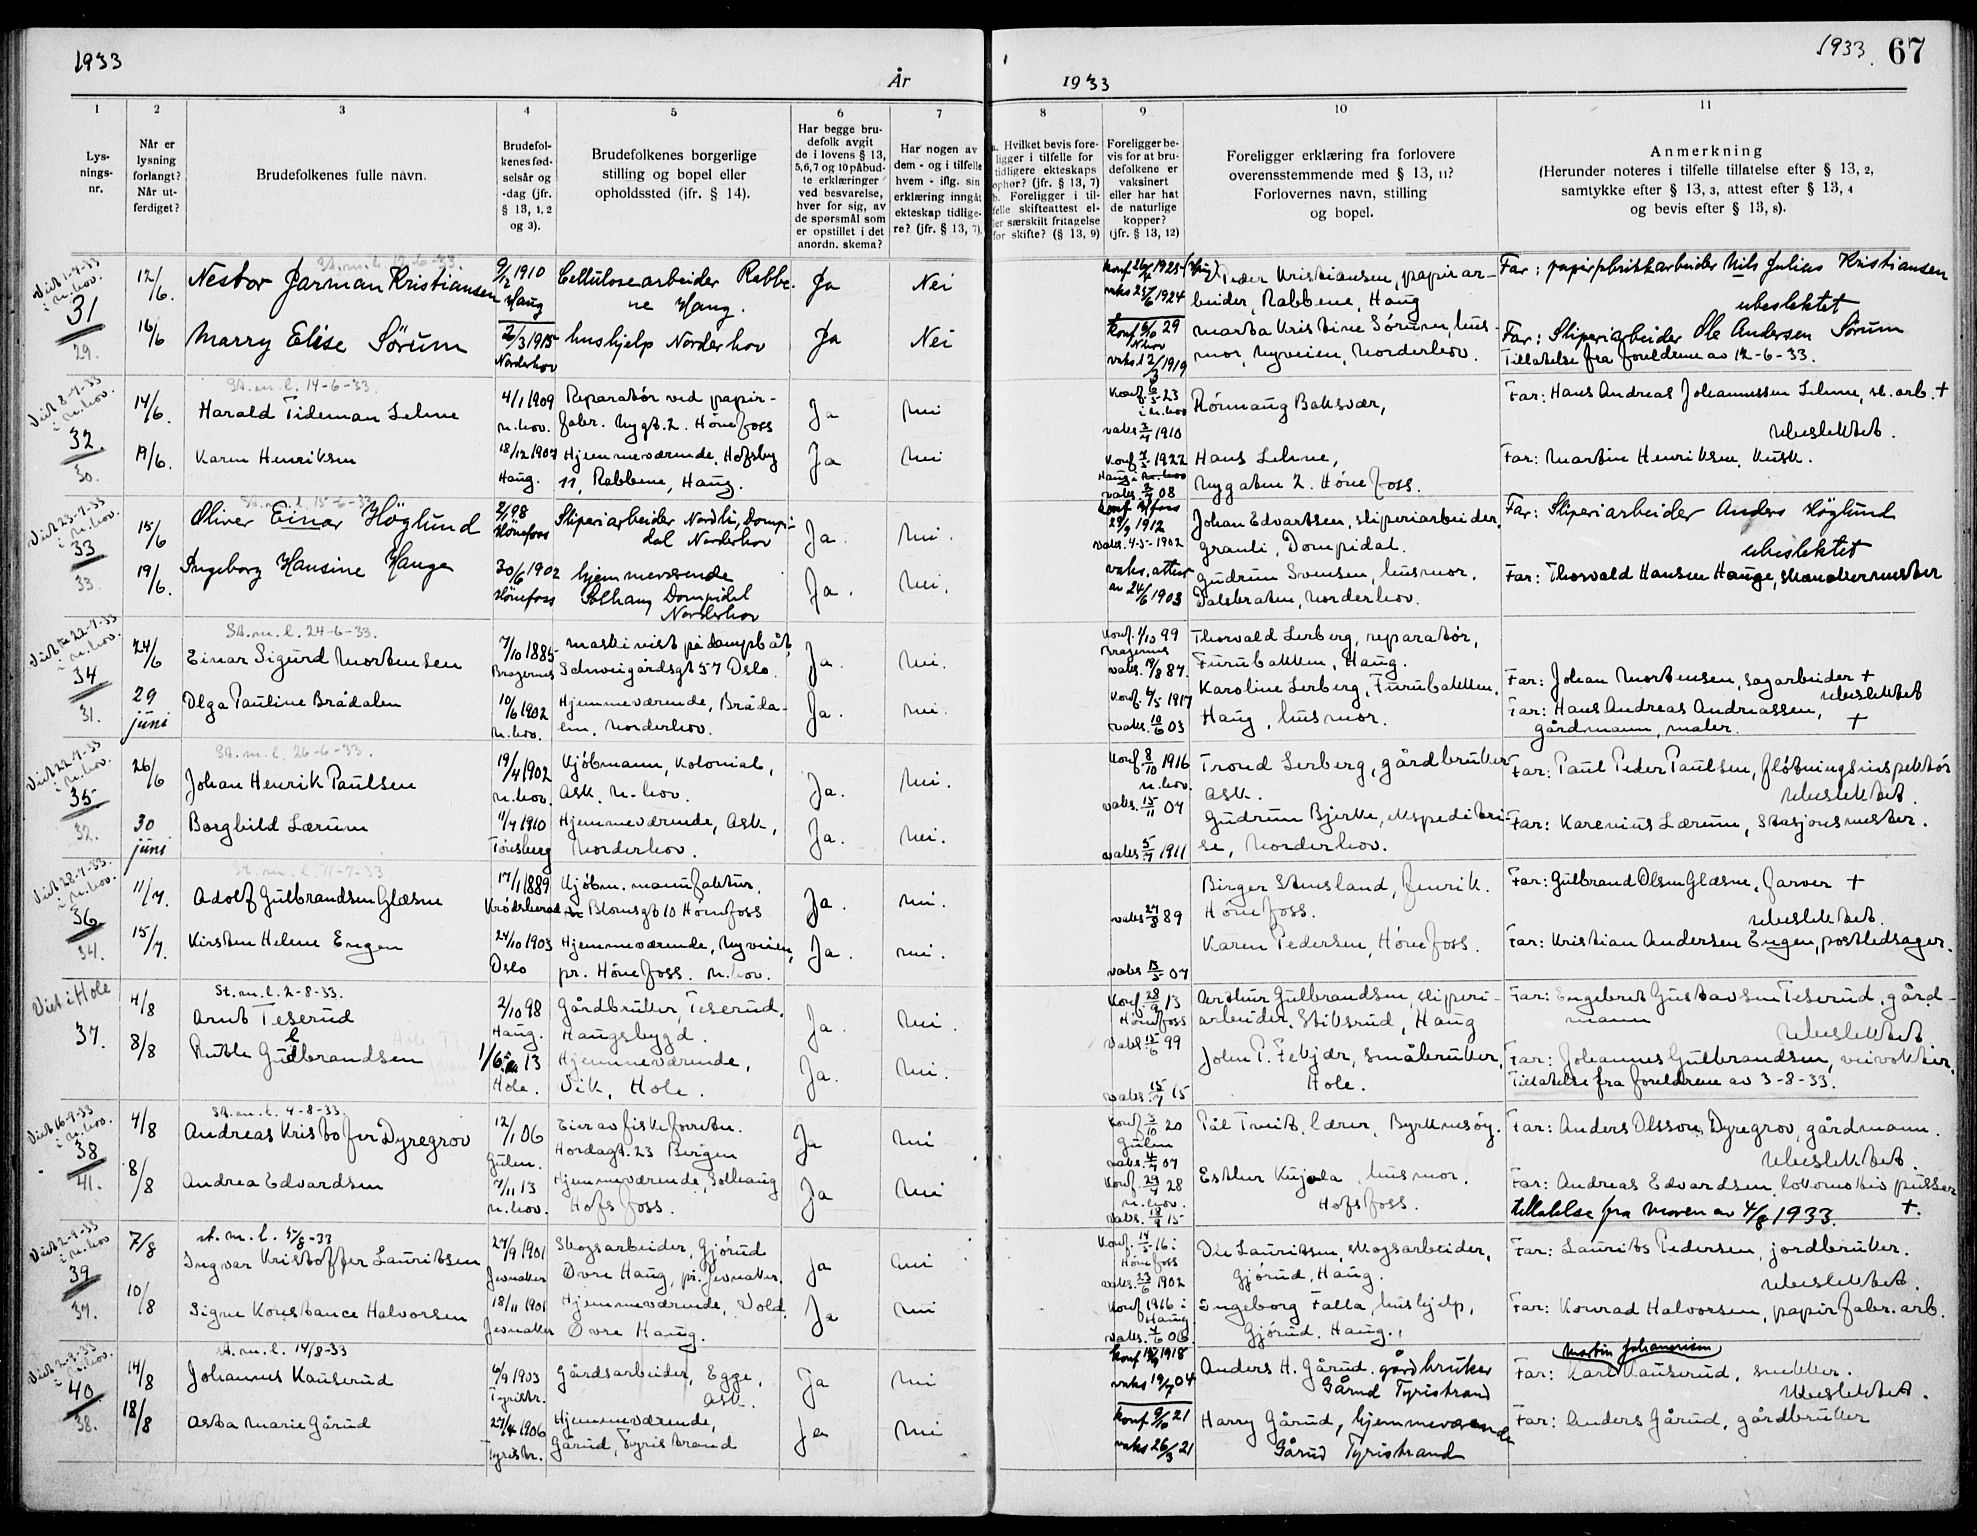 1933
År
1933
1933. 67
1
2
3
4
5
6
7
8
9
10
11
Lys-
nings-
nr.
Når er
lysning
forlangt?
Når ut-
ferdiget?
Brudefolkenes fulle navn.
Brudefol-
kenes fød-
selsår og
-dag (jfr.
§ 13, 1, 2
og 3).
Brudefolkenes borgerlige
stilling og bopel eller
opholdssted (jfr. § 14).
Har begge bru-
defolk avgit
de i lovens § 13,
5,6,7 og 10 påbud-
te erklæringer
ved besvarelse,
hver for sig, av
de spørsmål som
er opstillet i det
anordn. skema?
Har nogen av
dem - og i tilfelle
hvem - iflg. sin
erklæring inngått
ekteskap tidlige-
re? (jfr. § 13, 7).
a. Hvilket bevis fore-
ligger i tilfelle for
tidligere ekteskaps
ophør? (jfr. § 13, 7)
b. Foreligger i til-
felle skifteattest el-
ler særskilt fritagelse
for skifte? (§ 13, 9)
Foreligger be-
vis for at bru-
defolkene er
vaksinert
eller har hat
de naturlige
kopper?
(jfr. § 13, 12)
Foreligger erklæring fra forlovere
overensstemmende med § 13, 11?
Forlovernes navn, stilling
og bopel.
Anmerkning
(Herunder noteres i tilfelle tillatelse efter § 13, 2,
samtykke efter § 13, 3, attest efter § 13, 4
og bevis efter § 13, 8).
Viet 1-7-33
i N.hov.
31
29.
St. m. l. 12-6-33.
12/6. Nestor Jarman Kristiansen
9/2 1910
Haug
Cellulosearbeider Rabbe-
ne Haug.
Ja Nei
Konf. 1925
vaks 1924
Peder Kristiansen, papirar-
beider, Rabbene, Haug
Far: papirfabrikkarbeider Nils Julius Kristiansen
ubeslektet
16/6 Marry Elise Sørum
2/3 1915
Norderhov
hushjelp Norderhov
Ja Nei
konf 29
N.hov
vaks 12/3 1919
Marta Kristine Sørum, hus-
mor, Nyveien, Norderhov.
Far: Sliperiarbeider Ole Andersen Sørum
Tillatelse fra foreldrene av 12-6-33.
Viet 8-7-33
i N.hov.
32
30.
St. m. l. 14-6-33.
14/6. Harald Tideman Lehne
4/1 1909
N.hov.
Reparatør ved papir-
fabr. Nygt. 2. Hønefoss
Ja Nei
Konf. 6/5 23
i N.hov
vaks. 3/7 1910
Rønnaug Baksvær,
Far: Hans Andreas Johannessen Lehne, sl. arb. +
ubeslektet.
19/6. Karen Henriksen
18/12 1907
Haug.
Hjemmeværende, Hofsby
11, Rabbene, Haug.
Ja Nei
Konf. 7/5 1922
vaks 08
Hans Lehne,
Nygaten 2. Hønefoss.
Far: Martin Henriksen, kusk.
Viet 23-7-33
i N.hov.
33
33.
St. m. l. 15-6-33
15/6 Oliver Einar Höglund
2/1 98
Hönefoss
Sliperiarbeider Nordli, Dompi-
dal Norderhov
Ja. Nei.
29/9 1912
vaks. 4-5-1902
Johan Edvartsen, sliperiarbeider,
Granli, Dompidal.
Far: Sliperiarbeider Anders Höglund
ubeslektet
19/6. Ingeborg Hansine Hauge
30/6 1902
Hönefoss
hjemmeværende
Solhaug Dompidal
Norderhov
Ja. Nei.
vaks. attest
av 24/6 1903
Gudrun Svensen, husmor.
Dalsbraten, Norderhov.
Far: Thorvald Hansen Hauge, skomakermester
Viet 22-7-33
i N.hov.
34
31.
St. m. l. 24-6-33.
24/6 Einar Sigurd Mortensen
7/10 1885
Bragernes
Maskinist på dampbåt,
Schweigårdsgt 57 Oslo.
Ja. Nei.
Konf. 1/10 99
Bragernes
vaks. 19/8 87.
Thorvald Lerberg, reparatør,
Furubakken, Haug.
Far: Johan Mortensen, sagarbeider +
ubeslektet
29
juni
Olga Pauline Brådalen
10/6 1902
N.hov.
Hjemmeværende, Bråda-
len, Norderhov.
Ja. Nei.
Konf. 6/5 1917
vaks. 10/6 03
Karoline Lerberg, Furubakken,
Haug, husmor.
Far: Hans Andreas Andreassen,
gårdmann, maler. +
Viet 22-7-33
i N.hov.
35
32.
St. m. l. 26-6-33.
26/6 Johan Henrik Paulsen
19/4 1902
N.hov.
Kjøbmann, Kolonial,
Ask. N.-hov.
Ja. Nei.
Konf 8/10 1916
N.hov.
vaks. 15/11 07
Trond Lerberg, gårdbruker
Ask.
Far: Paul Peder Paulsen, fløtningsinspektør
ubeslektet.
30
juni
Borghild Lærum
11/7 1910
Tønsberg
Hjemmeværende, Ask,
Norderhov.
Ja. Nei.
vaks 5/7 1911
Gudrun Bjerke, ekspeditri-
se, Norderhov.
Far: Karenius Lærum, stasjonsmester.
Viet 28-7-33.
i N.hov.
36
34.
St. m. l. 11-7-33
11/7. Adolf Gulbrandsen Glæsne
17/1 1889
Krødsherad
Kjøbm. manufaktur,
Blomsgt 10 Hønefoss
Ja. Nei.
vaks 27/8 89
Birger Stensland, fenrik.
Hønefoss.
Far: Gulbrand Olsen Glæsne, farver +
ubeslektet.
15/7. Kirsten Helene Engen
24/10 1903
Oslo
Hjemmeværende, Nyveien,
pr. Hønefoss. N.hov.
Ja. Nei.
vaks 13/5 04
Karen Pedersen, Hønefoss.
Far: Kristian Andersen Engen, postledsager.
Viet i Hole
37.
St. m. l. 2-8-33.
4/8 Arnt Teserud
2/10 98
Haug.
Gårdbruker, Teserud,
Haugsbygd.
Ja. Nei.
Konf. 28/9 13
Hønefoss
vaks. 15/6 99
Arthur Gulbrandsen, sliperi-
arbeider, Stiksrud, Haug
Far: Engebret Gustavsen Teserud, gård-
mann
ubeslektet
8/8 Ruth Gulbrandsen
13
Hole.
Hjemmeværende,
Vik, Hole.
Ja. Nei.
vaks. 15/7 15
John P. Fekjær, småbruker,
Hole.
Far: Johannes Gulbrandsen, veivokter,
Tillatelse fra foreldrene av 3-8-33.
Viet 16-9-33
i N.hov.
38
41.
St. m. l. 4-8-33.
4/8 Andreas Kristofer Dyregrov
12/1 06
Gulen.
Eier av fiskeforretn.
Hordagt. 23 Bergen
Ja Nei
Konf 3/10 20
Gulen
vaks. 4/7 07
Pål Tveit, lærer, Byrknesøy.
Far: Anders Olsson Dyregrov, gårdmann.
ubeslektet.
8/8 Andrea Edvardsen
7/11 13
N.hov.
Hjemmeværende, Solhaug
Hofsfoss.
Ja Nei
Konf. 29/7 28
N.hov.
vaks. 18/9 15
Esther Kujala, husmor.
Hofsfoss.
Far: Andreas Edvardsen, lokomotivpusser
tillatelse fra moren av 4/8 1933. +.
Viet 2-9-33
i N.hov
39
37.
st. m. l. 5/8-33
7/8 Ingvar Kristoffer Lauritsen
27/9 1901
Jevnaker
Skogsarbeider, Gjørud
Øvre Haug, pr. Jevnaker.
Ja Nei
Konf. 14/5 16 i
Hønefoss
vaks. 23/6 1902
Ole Lauritsen, skogsarbeider,
Gjørud, Haug.
Far: Laurits Pedersen, jordbruker.
ubeslektet.
10/8 Signe Konstance Halvorsen
18/11 1901
Jevnaker
Hjemmeværende, Vold
Øvre Haug.
Ja Nei
Konf 1916 i
Haug
vaks. 7/6 06
Ingeborg Falla, hushjelp,
Gjørud. Haug.
Far: Konrad Halvorsen, papirfabr. arb.
Viet 2-9-33
i N.hov.
40
38.
st. m. l. 14/8-33
14/8 Johannes Kauserud
6/9 1903
Tyristr.
Gårdsarbeider, Egge,
Ask.
Ja Nei
konf 1918
vaks 19/7 04
Anders H. Gårud. gårdbruker
Gårud Tyristrand
Martin Johannesen
Far: Karl Kauserud, snekker.
ubeslektet.
18/8 Asta Marie Gårud
27/4 1906
Tyristr.
Hjemmeværende,
Gårud, Tyristrand
Ja Nei
konf 9/10 21
vaks 26/3 21
Harry Gårud, hjemmeværende
Gårud Tyristrand
Far: Anders Gårud, gårdbruker